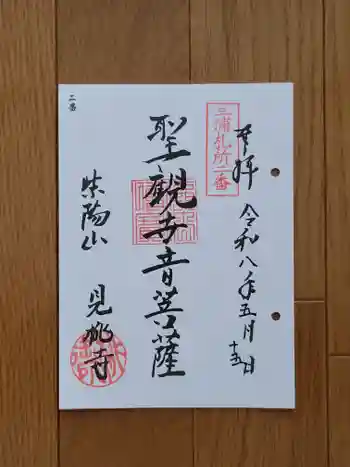 奉拝 令和八年五月十五日
三浦札所二番
聖観世音菩薩
二番
紫陽山 見桃寺